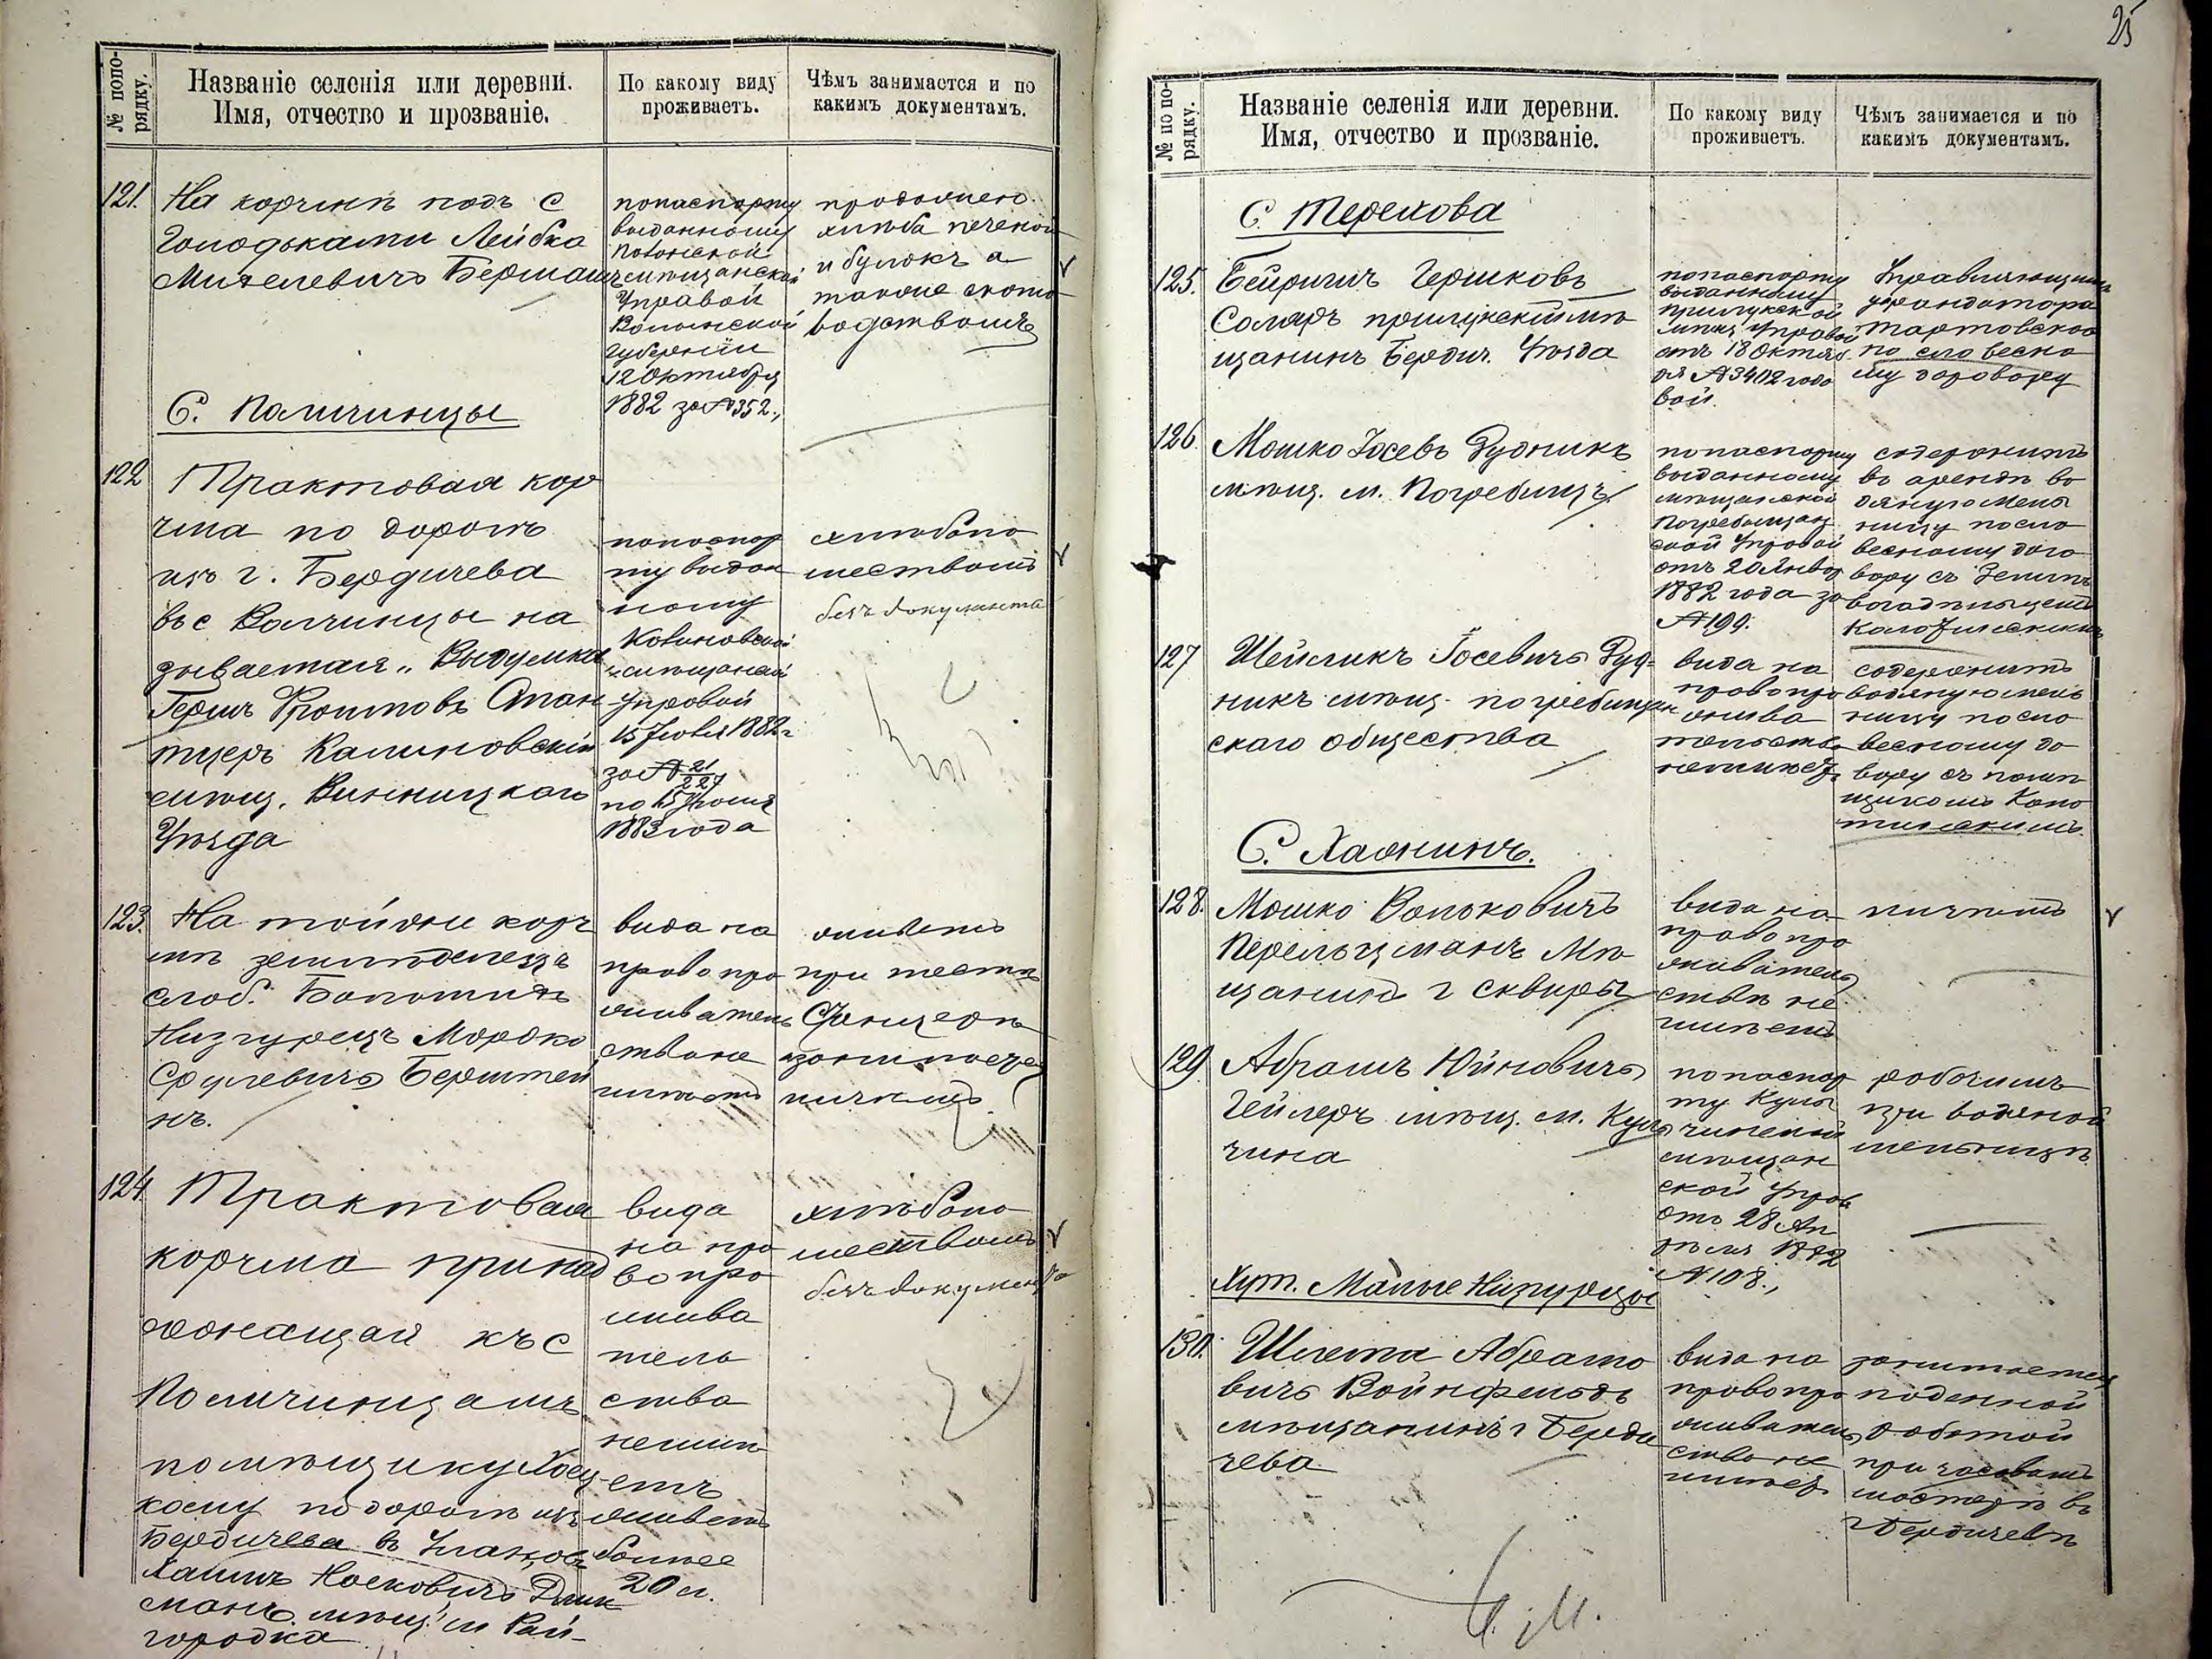 № по по-
рядку.
Названіе селенія или деревни.
Имя, отчество и прозваніе.
По какому виду
проживаетъ.
Чѣмъ занимается и по
какимъ документамъ.
121.
На корчмѣ подъ с
Голодьками Лейбка
Михелевичъ Берман
попаспорту
выданному
мѣщанской
Управой
Волынской
губерніи
12 Октября
1882 за № 352.,
продажею
хлѣба печеной
и булокъ а
также ското
водствомъ
С. Палчинцы
122
Трактовая кор
чма по дорогѣ
изъ г. Бердичева
въ с Палчинцы на
зываемая „Выдумка
Гершъ
Калиновскій
мѣщ. Винницкаго
Уѣзда
попаспор
ту выдан
ному
Калиновской
мѣщанской
Управой
15 Іюля 1882 г
за № 21/227
по 15 Іюля
1883 года
хлѣбопа
шествомъ
безъ документа
123.
На той же корч
мѣ земледелецъ
слоб.
Низгурецъ Мордко
Срулевичъ Берштей
нъ.
вида на
право про
живатель
ства не
имѣетъ
живетъ
при тестѣ
занимается
ничемъ
124
Трактовая
корчма принад
лежащая къ с
Палчинцамъ
помѣщику
кому по дорогѣ изъ
Бердичева въ Улановъ
Хаимъ Носковичъ
манъ мѣщ. м Рай-
городка
вида
на пра
во про
жива
тель
ства
неимѣ
етъ
живетъ
болѣе
20 л.
хлѣбопа
шествомъ
безъ документа
25
№ по по-
рядку.
Названіе селенія или деревни.
Имя, отчество и прозваніе.
По какому виду
проживаетъ.
Чѣмъ занимается и по
какимъ документамъ.
С. Терехова
125.
Гершковъ
Соляръ прилукскій мѣ
щанинъ Бердич. Уѣзда
попаспорту
выданному
прилукской
мѣщ Управой
отъ 18 Октяб
ря № 3402 годо
вой.
Управляющимъ
у арендатора
по словесно
му договору
126.
Мошко Іосевъ Рудникъ
мѣщ. м. Погребищъ
попаспорту
выданному
мѣщанской
Погребищан
ской Управой
отъ 20 Январ
1882 года за
№ 199.
содержитъ
въ арендѣ во
дяную мель
ницу посло
весному дого
вору съ
127
Шейликъ Іосевичъ Руд-
никъ мѣщ. погребищан
скаго общества
вида на
право про
жива
тельства
неимѣет
содержитъ
водяную мель
ницу посло
весному до
вору съ помѣ
щикомъ
С. Хажинъ.
128.
Мошко Вольковичъ
Перельцманъ Мѣ
щанинъ г Сквиры
вида на
право про
живатель
ства не
имѣетъ
ничѣмъ
129
Абрамъ Юйновичъ
Гейлеръ мѣщ. м. Куль
чина
попаспор
ту Куль
чинской
мѣщан
ской Управ
отъ 28 Ап
рѣля 1882
№ 108.,
робочимъ
при водяной
мельницѣ
Хут. Малые Низгурцы
130.
Шлема Абрамо
вичъ Войнфельдъ
мѣщанинъ г Берди
чева
вида на
право про
живатель
ство не
имѣет.
занимается
поденной
роботой
при часовомъ
мастерѣ въ
г Бердичевѣ